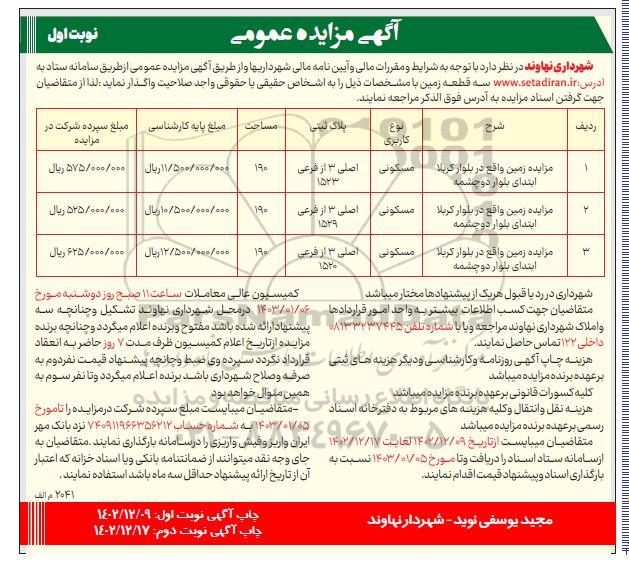 آگهی مزایده عمومی
نوبت اول
شهرداری نهاوند در نظر دارد با توجه به شرایط و مقررات مالی و آیین نامه مالی شهرداریها و از طریق آگهی مزایده عمومی از طریق سامانه ستاد به
ادرس: www.setadiran.ir سه قطعه زمین با مشخصات ذیل را به اشخاص حقیقی یا حقوقی واجد صلاحیت واگذار نماید؛ لذا از متقاضیان
جهت گرفتن اسناد مزایده به آدرس فوق الذکر مراجعه نمایند.
ردیف شرح نوع کاربری پلاک ثبتی مساحت مبلغ پایه کارشناسی مبلغ سپرده شرکت در مزایده
۱ مزایده زمین واقع در بلوار کربلا ابتدای بلوار دوچشمه مسکونی اصلی ۳ از فرعی ۱۵۲۳ ۱۹۰ ۱۱/۵۰۰/۰۰۰/۰۰۰ ریال ۵۷۵/۰۰۰/۰۰۰ ریال
۲ مزایده زمین واقع در بلوار کربلا ابتدای بلوار دوچشمه مسکونی اصلی ۳ از فرعی ۱۵۲۹ ۱۹۰ ۱۰/۵۰۰/۰۰۰/۰۰۰ ریال ۵۲۵/۰۰۰/۰۰۰ ریال
۳ مزایده زمین واقع در بلوار کربلا ابتدای بلوار دوچشمه مسکونی اصلی ۳ از فرعی ۱۵۲۰ ۱۹۰ ۱۲/۵۰۰/۰۰۰/۰۰۰ ریال ۶۲۵/۰۰۰/۰۰۰ ریال
شهرداری در رد یا قبول هریک از پیشنهادها مختار میباشد
متقاضیان جهت کسب اطلاعات بیشتر به واحد امور قراردادها
و املاک شهرداری نهاوند مراجعه و یا با شماره تلفن ۰۸۱۳۳۲۳۷۴۴۵
داخلی ۱۲۲ تماس حاصل نمایند.
هزینه چاپ آگهی روزنامه و کارشناسی و دیگر هزینه های ثبتی
بر عهده برنده مزایده میباشد
کلیه کسورات قانونی برعهده برنده مزایده میباشد
هزینه نقل و انتقال و کلیه هزینه های مربوط به دفترخانه اسناد
رسمی بر عهده برنده مزایده میباشد
متقاضیان میبایست از تاریخ ۱۴۰۲/۱۲/۰۹ لغایت ۱۴۰۲/۱۲/۱۷
از سامانه ستاد اسناد را دریافت و تا مورخ ۱۴۰۳/۰۱/۰۵ نسبت به
بارگذاری اسناد و پیشنهاد قیمت اقدام نمایند.
کمیسیون عالی معاملات ساعت ۱۱ صبح روز دوشنبه مورخ
۱۴۰۳/۰۱/۰۶ در محل شهرداری نهاوند تشکیل و چنانچه سه
پیشنهاد ارائه شده باشد مفتوح و برنده اعلام میگردد و چنانچه برنده
مزایده از تاریخ اعلام کمیسیون ظرف مدت ۷ روز حاضر به انعقاد
قرارداد نگردد سپرده وی ضبط و چانچه پیشنهاد قیمت نفر دوم به
صرفه و صلاح شهرداری باشد برنده اعلام میگردد و تا نفر سوم به
همین منوال خواهد بود
-متقاضیان میبایست مبلغ سپرده شرکت در مزایده را تا مورخ
۱۴۰۳/۰۱/۰۵ به شماره حساب ۷۴۰۹۱۱۹۶۶۳۵۶۲۱۲ نزد بانک مهر
ایران واریز و فیش واریزی را در سامانه بارگذاری نمایند .متقاضیان به
جای وجه نقد میتوانند از ضمانتنامه بانکی و یا اسناد خزانه که اعتبار
آن از تاریخ ارائه پیشنهاد حداقل سه ماه باشد استفاده نمایند.
۲۰۴۱ م الف
مجید یوسفی نوید - شهردار نهاوند
چاپ آگهی نوبت اول: ۱۴۰۲/۱۲/۰۹
چاپ آگهی نوبت دوم: ۱۴۰۲/۱۲/۱۷